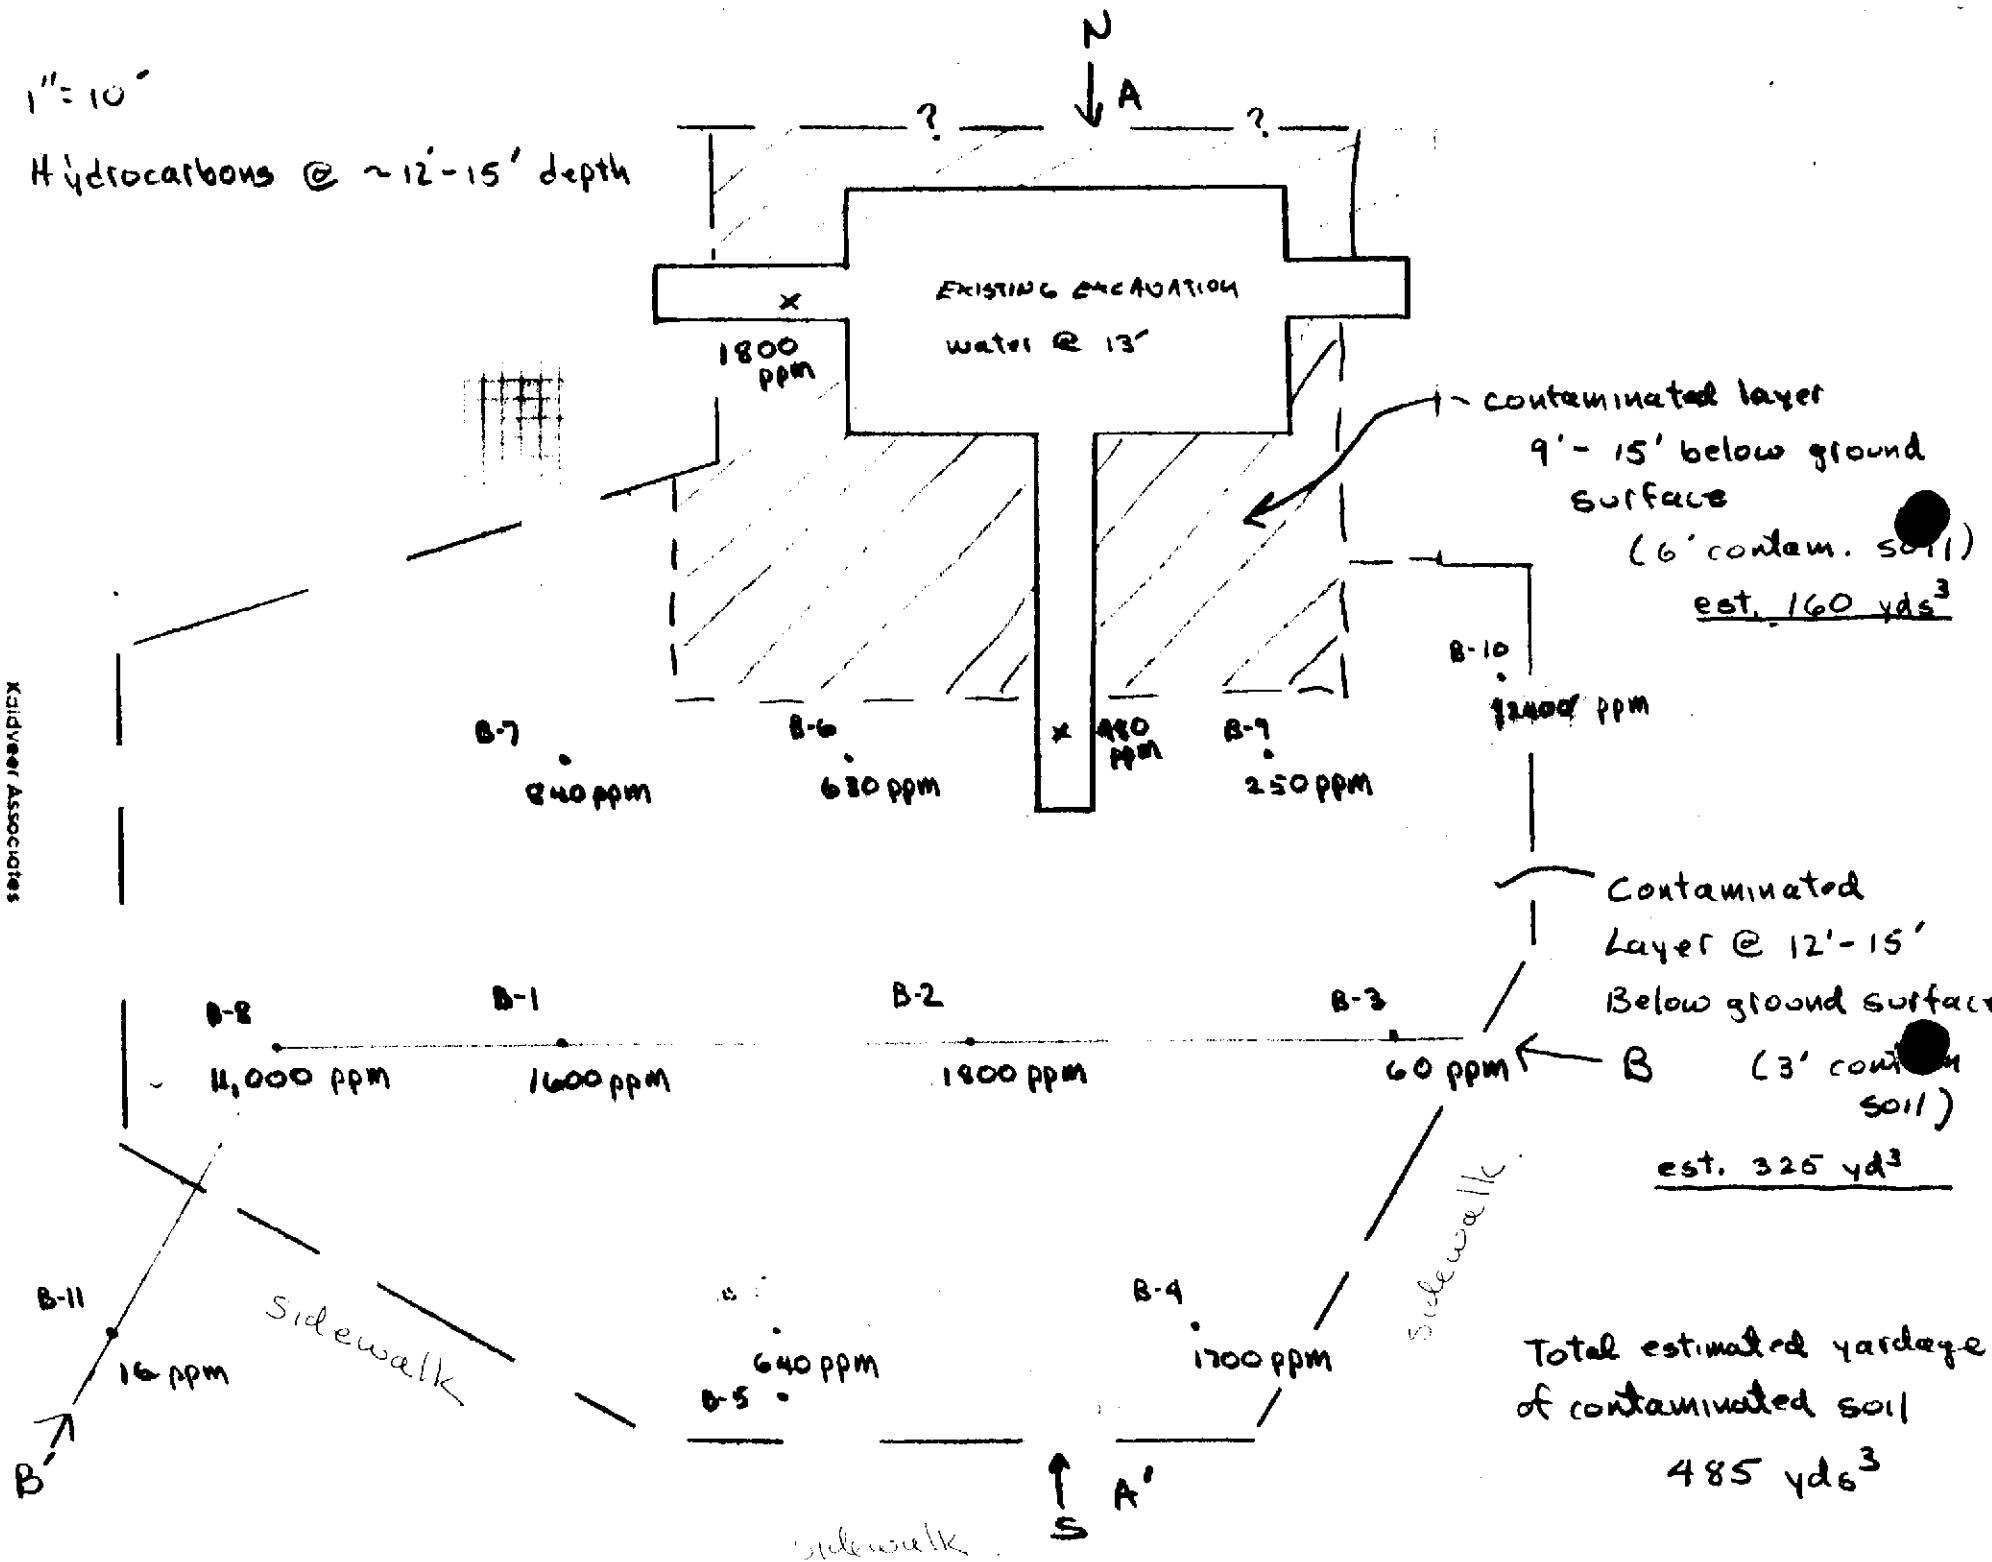 N
1"= 10'
A
Hydrocarbons @ ~12'-15' depth
?
?
EXISTING EXCAVATION
water @ 13'
x
1800
ppm
contaminated layer
9'- 15' below ground
surface
(6' contam. soil)
est. 160 yds³
B-10
ppm
B-7
840 ppm
B-6
ppm
x
ppm
B-9
250 ppm
Kaldveer Associates
Contaminated
Layer @ 12'-15'
Below ground surface
(3' contam
soil)
est. 325 yd³
B-8
11,000 ppm
B-1
1600 ppm
B-2
1800 ppm
B-3
60 ppm
B
Sidewalk
B-11
16 ppm
B'
Sidewalk
640 ppm
B-5
B-4
1700 ppm
A'
S
Sidewalk
Total estimated yardage
of contaminated soil
485 yds³